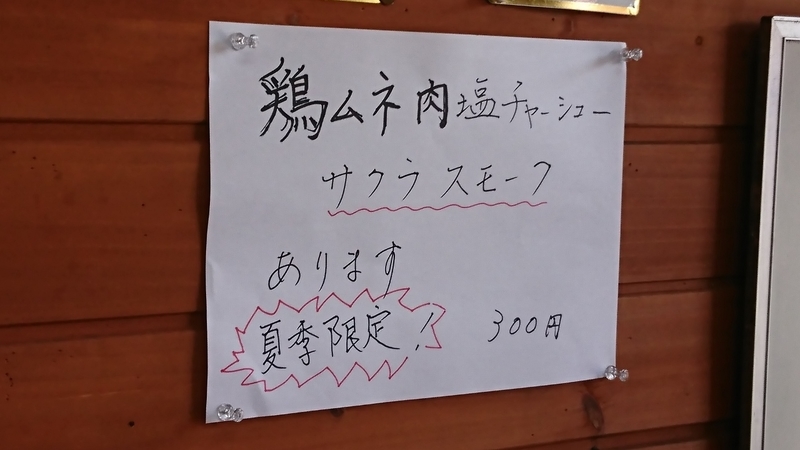 鶏ムネ肉塩チャーシュー
サクラスモーク
あります
夏季限定！ 300円